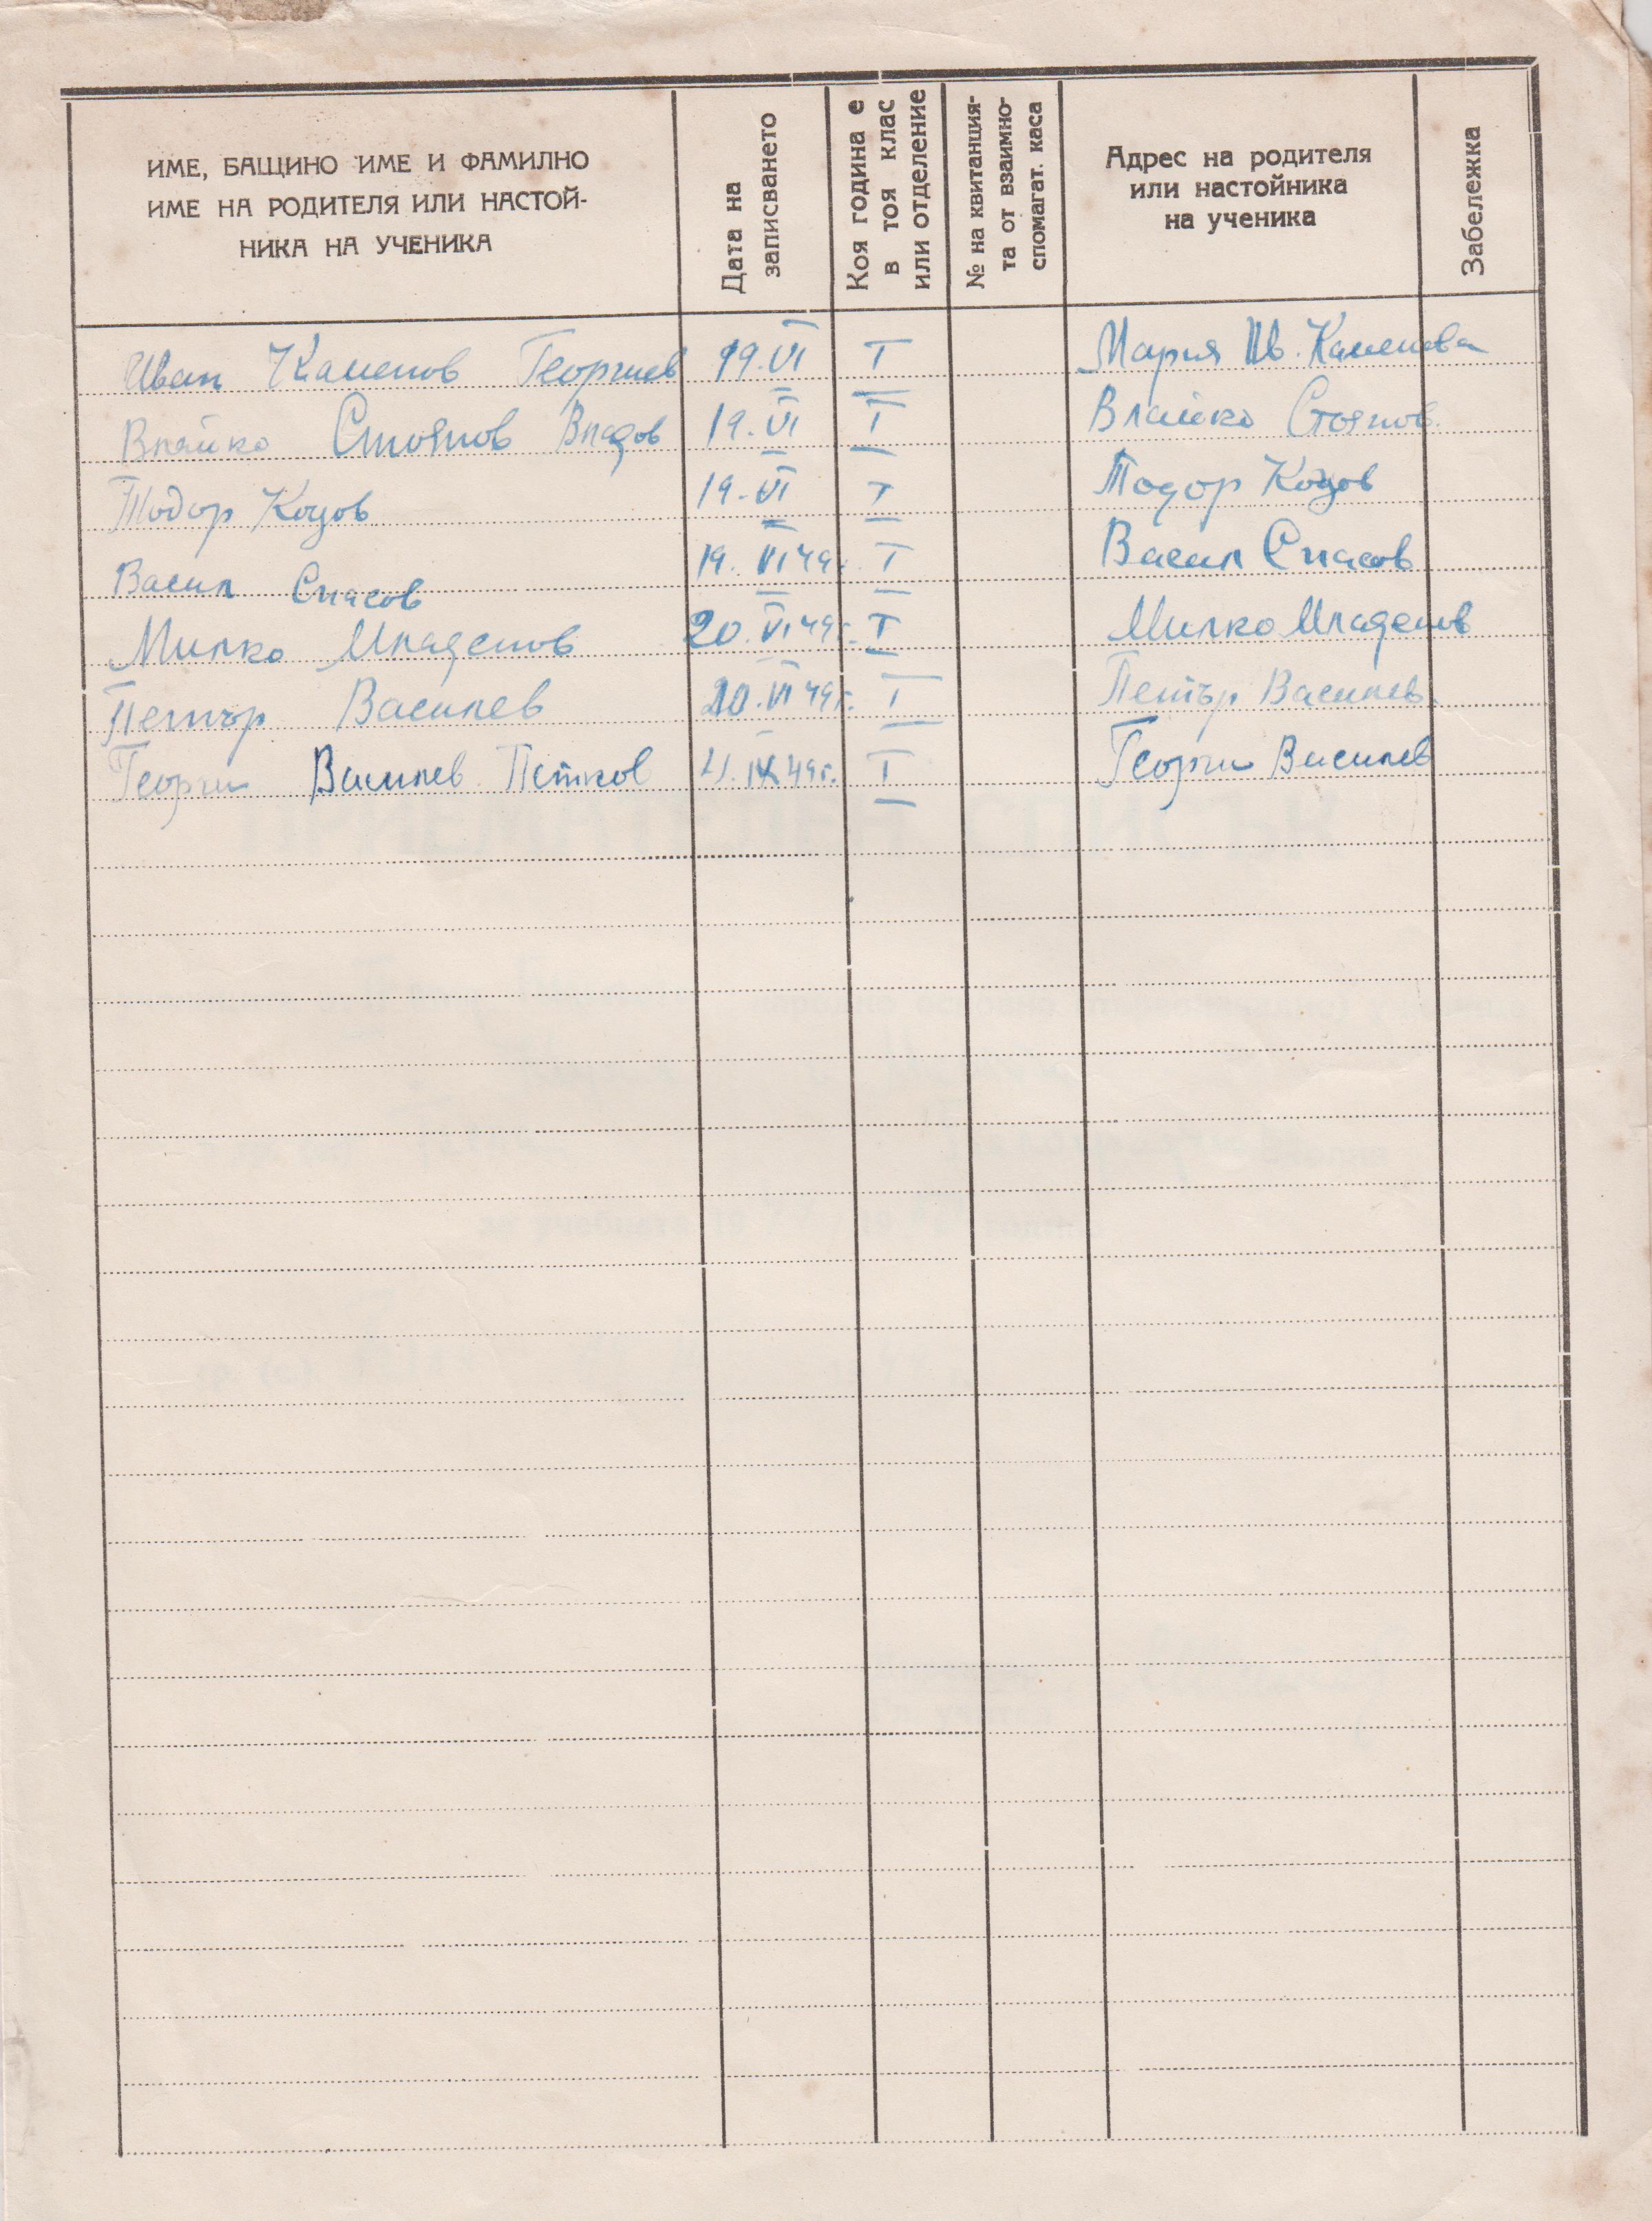 ИМЕ, БАЩИНО ИМЕ И ФАМИЛНО
ИМЕ НА РОДИТЕЛЯ ИЛИ НАСТОЙ-
НИКА НА УЧЕНИКА
Дата на
записването
Коя година е
в тоя клас
или отделение
№ на квитанция-
та от взаимно-
спомагат. каса
Адрес на родителя
или настойника
на ученика
Забележка
Иван Каменов Георгиев 19.VI I Мария Ив. Каменова
Влайко Стоянов Владов 19.VI I Влайко Стоянов.
Тодор Коцов 19.VI I Тодор Коцов
Васил Спасов 19.VI 49г. I Васил Спасов
Милко Младенов 20.VI 49г. I Милко Младенов
Петър Василев 20.VI 49г. I Петър Василев.
Георги Василев Петков IX 49г. I Георги Василев